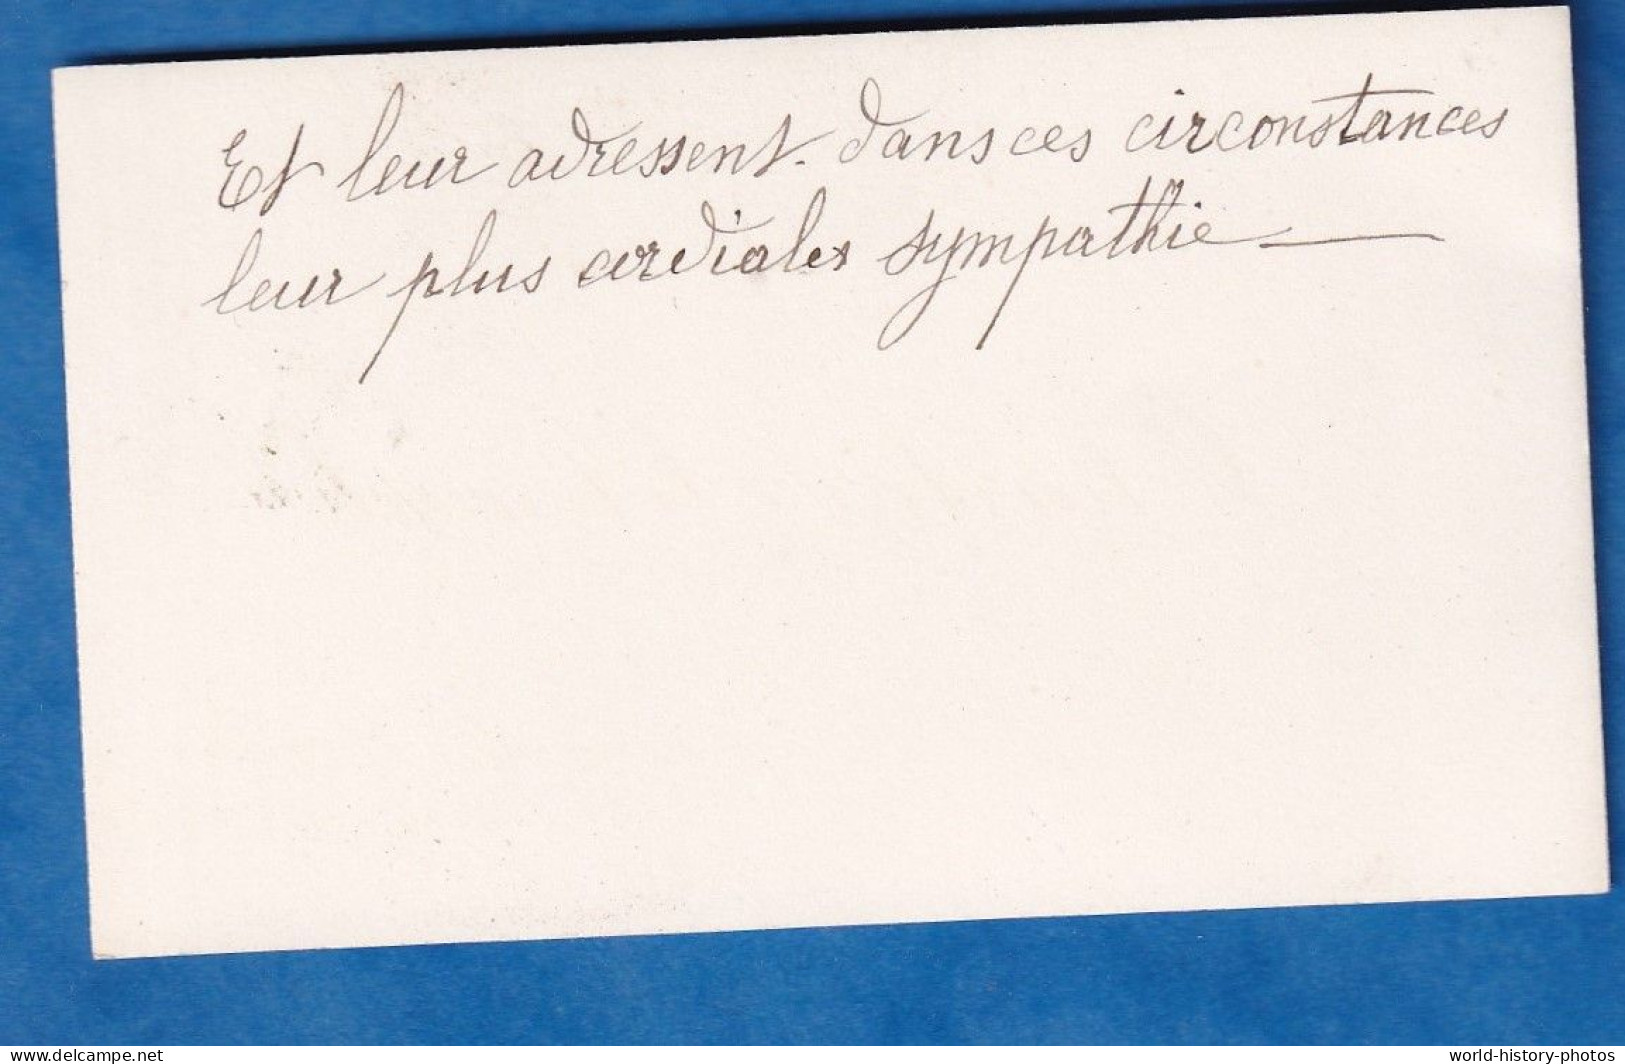 Et leur adressent. dans ces circonstances
leur plus cordiales sympathie —
www.delcampe.net
world-history-photos